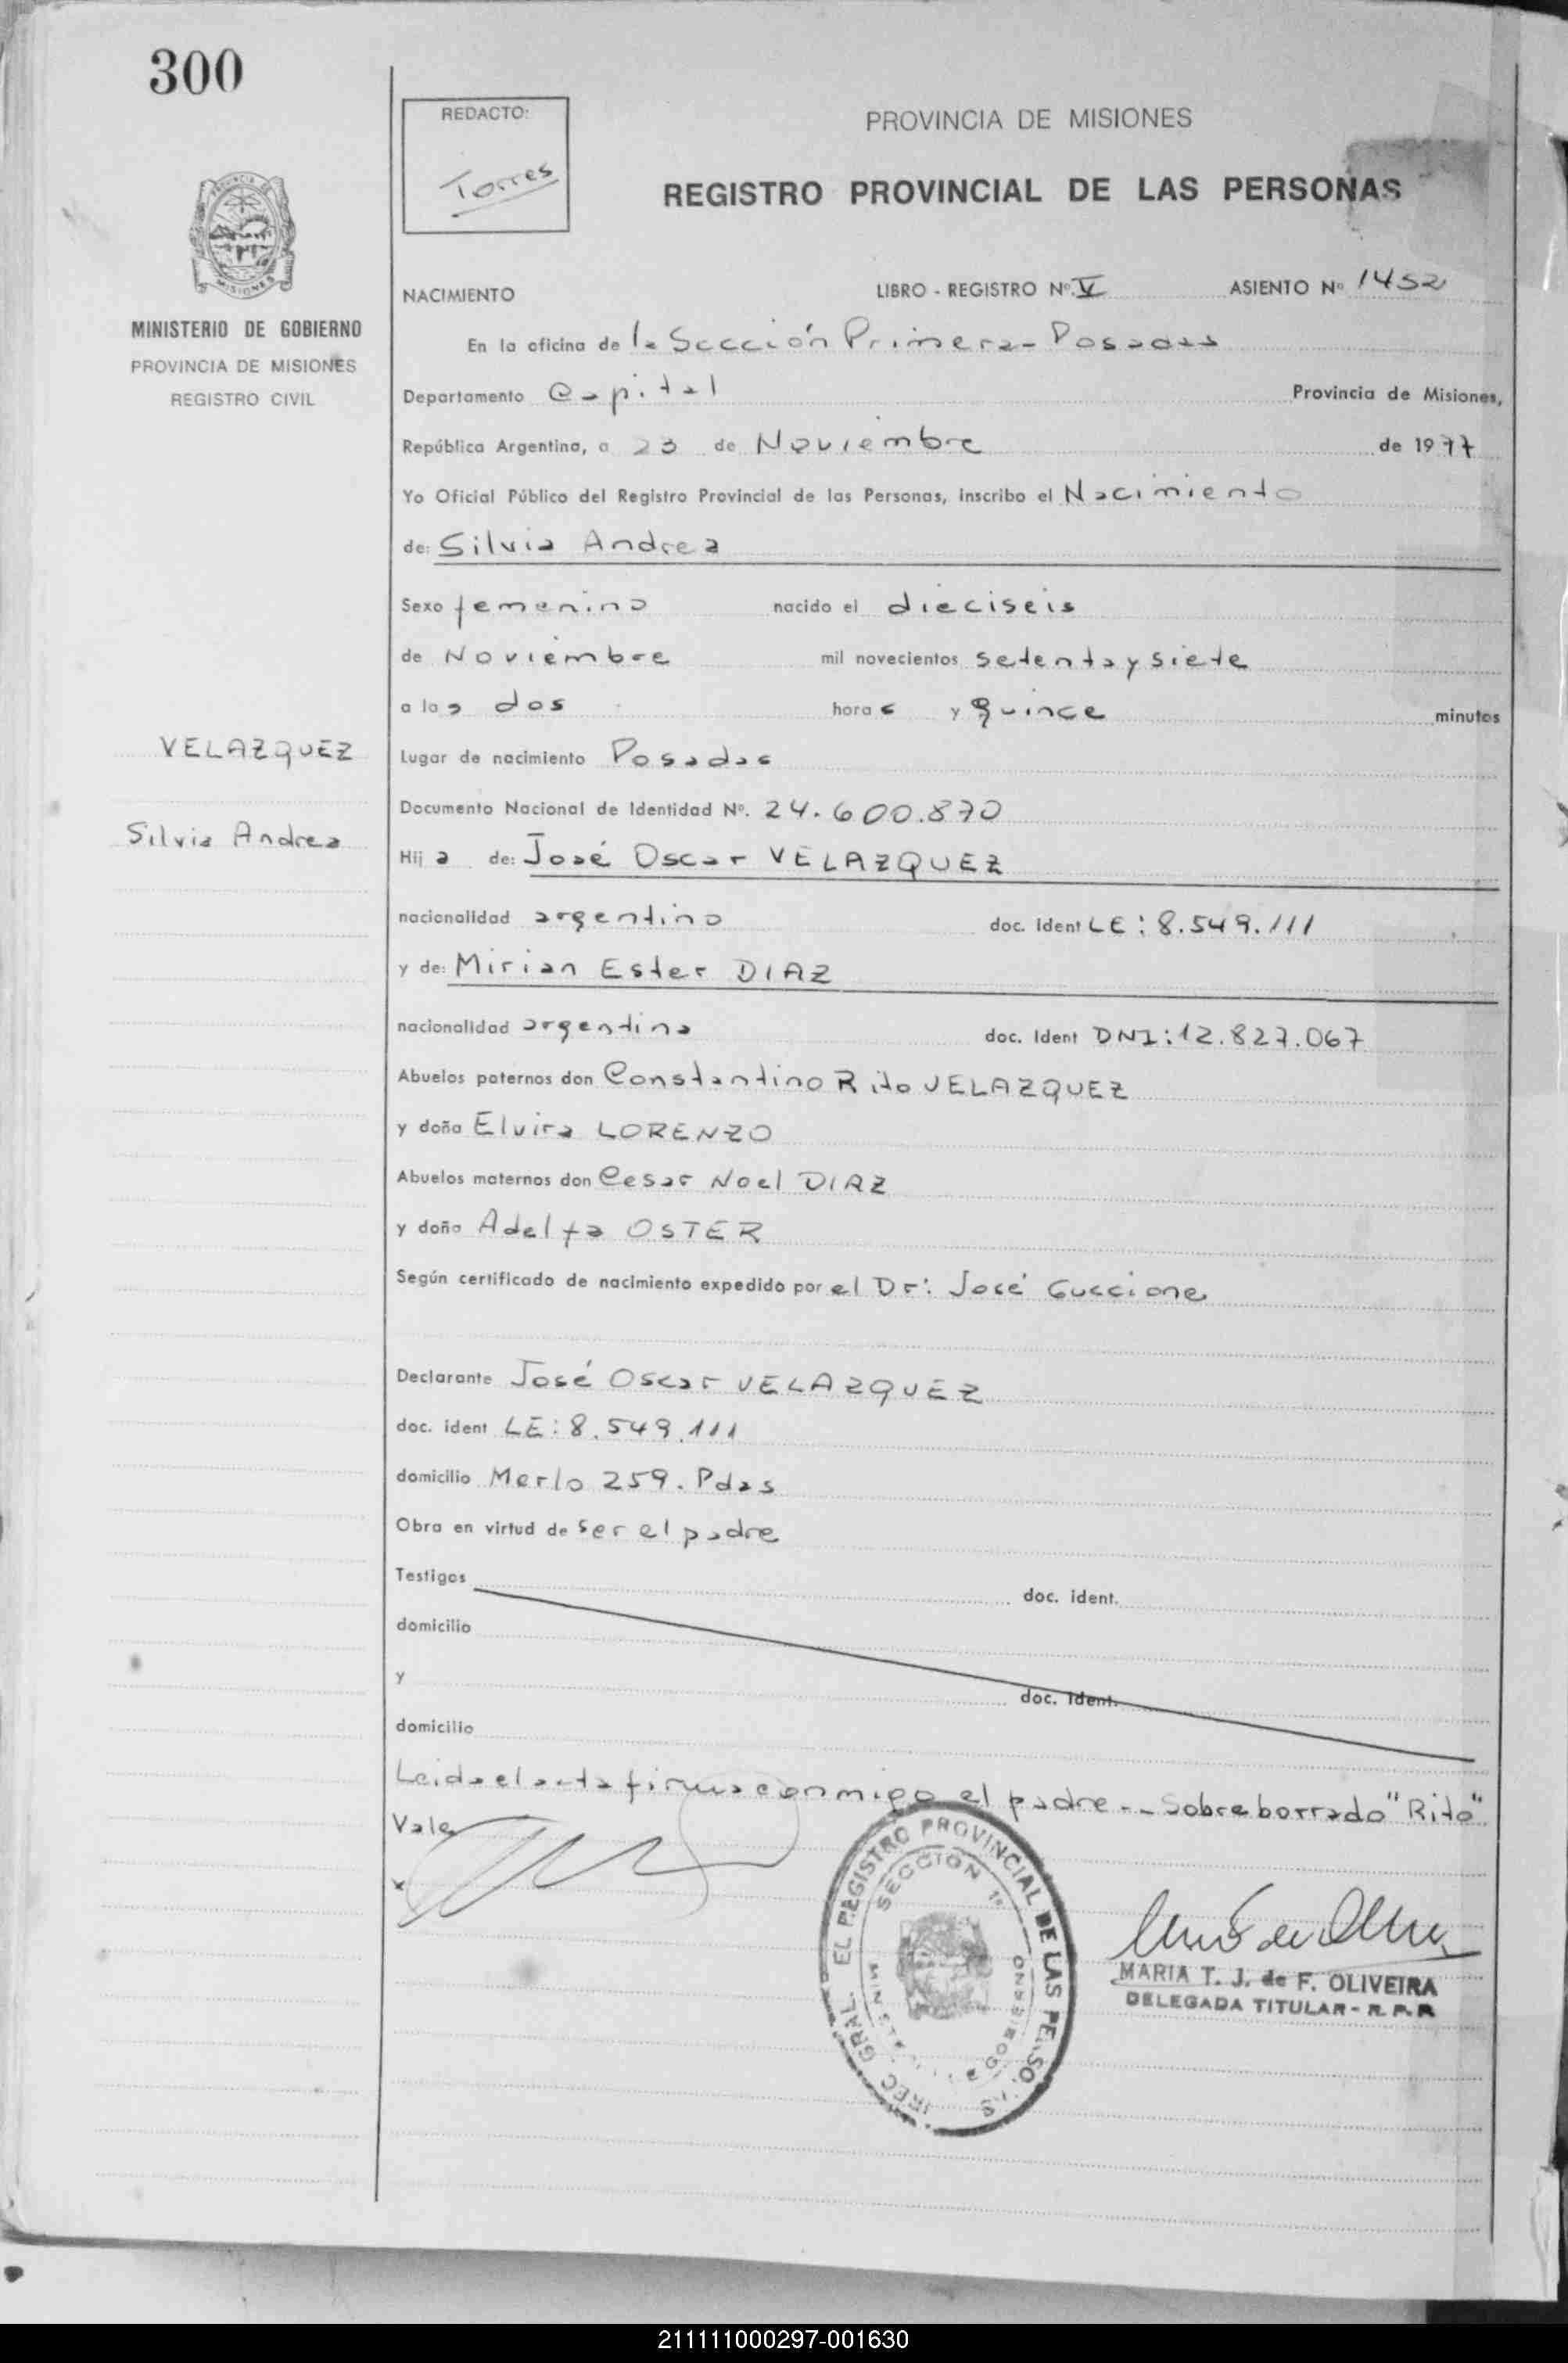 300
REDACTO:
Torres
PROVINCIA DE MISIONES
REGISTRO PROVINCIAL DE LAS PERSONAS
MISIONES
MINISTERIO DE GOBIERNO
PROVINCIA DE MISIONES
REGISTRO CIVIL
NACIMIENTO LIBRO - REGISTRO Nº. V ASIENTO Nº 1452
En la oficina de la Sección Primera - Posadas
Departamento Capital Provincia de Misiones,
República Argentina, a 23 de Noviembre de 1977
Yo Oficial Público del Registro Provincial de las Personas, inscribo el Nacimiento
de: Silvia Andrea
Sexo femenino nacido el dieciseis
de Noviembre mil novecientos setenta y siete
a las dos horas y quince minutos
VELAZQUEZ
Silvia Andrea
Lugar de nacimiento Posadas
Documento Nacional de Identidad Nº. 24.600.870
Hija de: José Oscar VELAZQUEZ
nacionalidad argentino doc. ident LE: 8.549.111
y de: Mirian Ester DIAZ
nacionalidad argentina doc. Ident DNI: 12.827.067
Abuelos paternos don Constantino Rito VELAZQUEZ
y doña Elvira LORENZO
Abuelos maternos don Cesar Noel DIAZ
y doña Adelfa OSTER
Según certificado de nacimiento expedido por el Dr: José Guccione
Declarante José Oscar VELAZQUEZ
doc. ident LE: 8.549.111
domicilio Merlo 259. Pdas
Obra en virtud de ser el padre
Testigos doc. ident.
domicilio
y doc. Ident.
domicilio
Leida el acta firma conmigo el padre -- Sobreborrado "Rito"
Vale
x
EL REGISTRO PROVINCIAL DE LAS
SECCION 1ª
GRAL.
GOBIERNO
MARIA T. J. de F. OLIVEIRA
DELEGADA TITULAR - R. P. P.
211111000297-001630